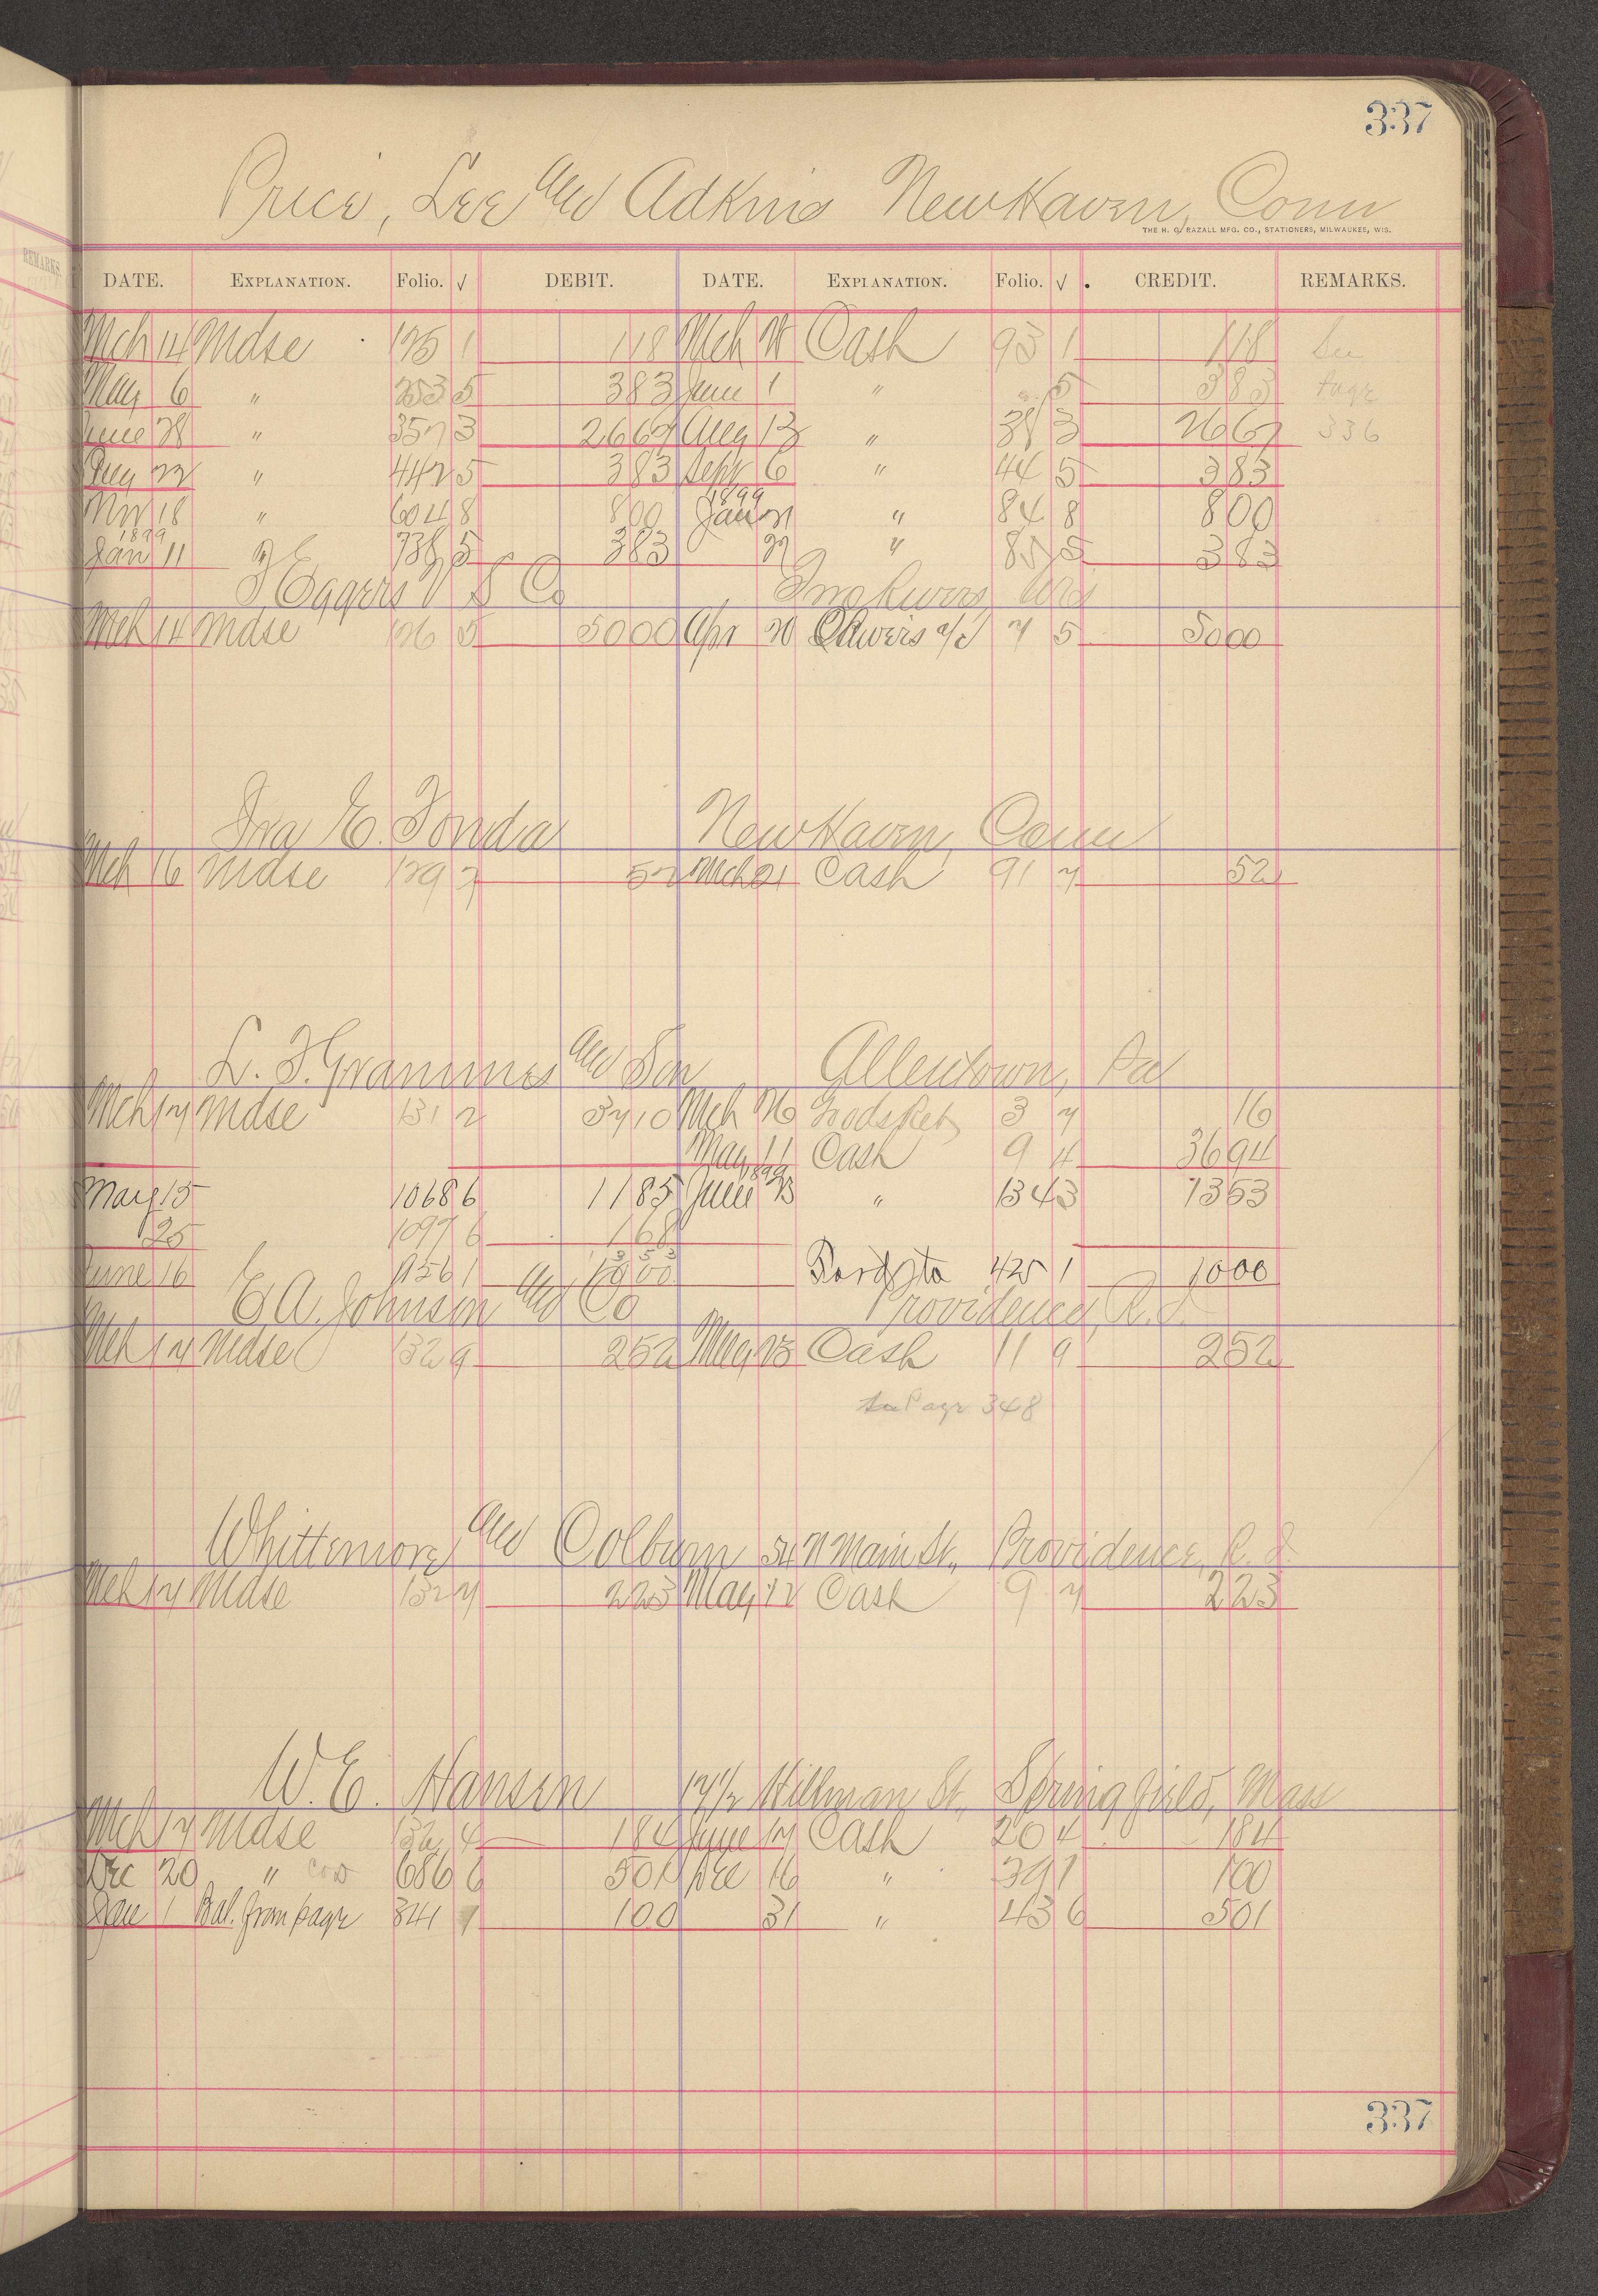 337
Price, Lee and Adkins New Haven, Conn
THE H. G. RAZALL MFG. CO., STATIONERS, MILWAUKEE, WIS.
DATE. EXPLANATION. Folio. √ DEBIT. DATE. EXPLANATION. Folio. √ CREDIT. REMARKS.
Mch 14 Mdse 125 1 118 Mch 28 Cash 93 1 118 See
May 6 " 253 5 383 June 1 " 5 383 Page
June 28 " 357 3 2667 Aug 13 " 38 3 2667 336
Aug 22 " 442 5 383 Sept 6 " 44 5 383
1899
Nov 18 " 604 8 800 Jan 21 " 84 8 800
1899
Jan 11 " 738 5 383 27 " 85 5 383
F Eggers V S Co Two Rivers, Wis
Mch 14 Mdse 126 5 5000 Apr 20 7 5 5000
Ira E. Fonda New Haven, Conn
Mch 16 Mdse 129 7 52 Mch 21 Cash 91 7 52
L. F. Grammes and Son Allentown, Pa
Mch 17 Mdse 131 2 3710 Mch 26 Goods Ret 3 7 16
May 11 Cash 9 4 3694
1899
May 15 1068 6 1185 June 23 " 134 3 1353
25 1097 6 168
1353
June 16 1156 1 1000 425 1 1000
E A. Johnson and Co Providence, R. I.
Mch 17 Mdse 132 9 252 May 23 Cash 11 9 252
See Page 348
Whittemore and Colburn 34 N Main St., Providence, R. I.
Mch 17 Mdse 132 7 223 May 12 Cash 9 7 223
W. E. Hansen 17½ Hillman St., Springfield, Mass
Mch 17 Mdse 132 4 184 June 17 Cash 20 4 184
Dec 20 " COD 686 6 501 Dec 16 " 39 1 100
Jan 1 Bal. from page 341 1 100 31 " 43 6 501
337